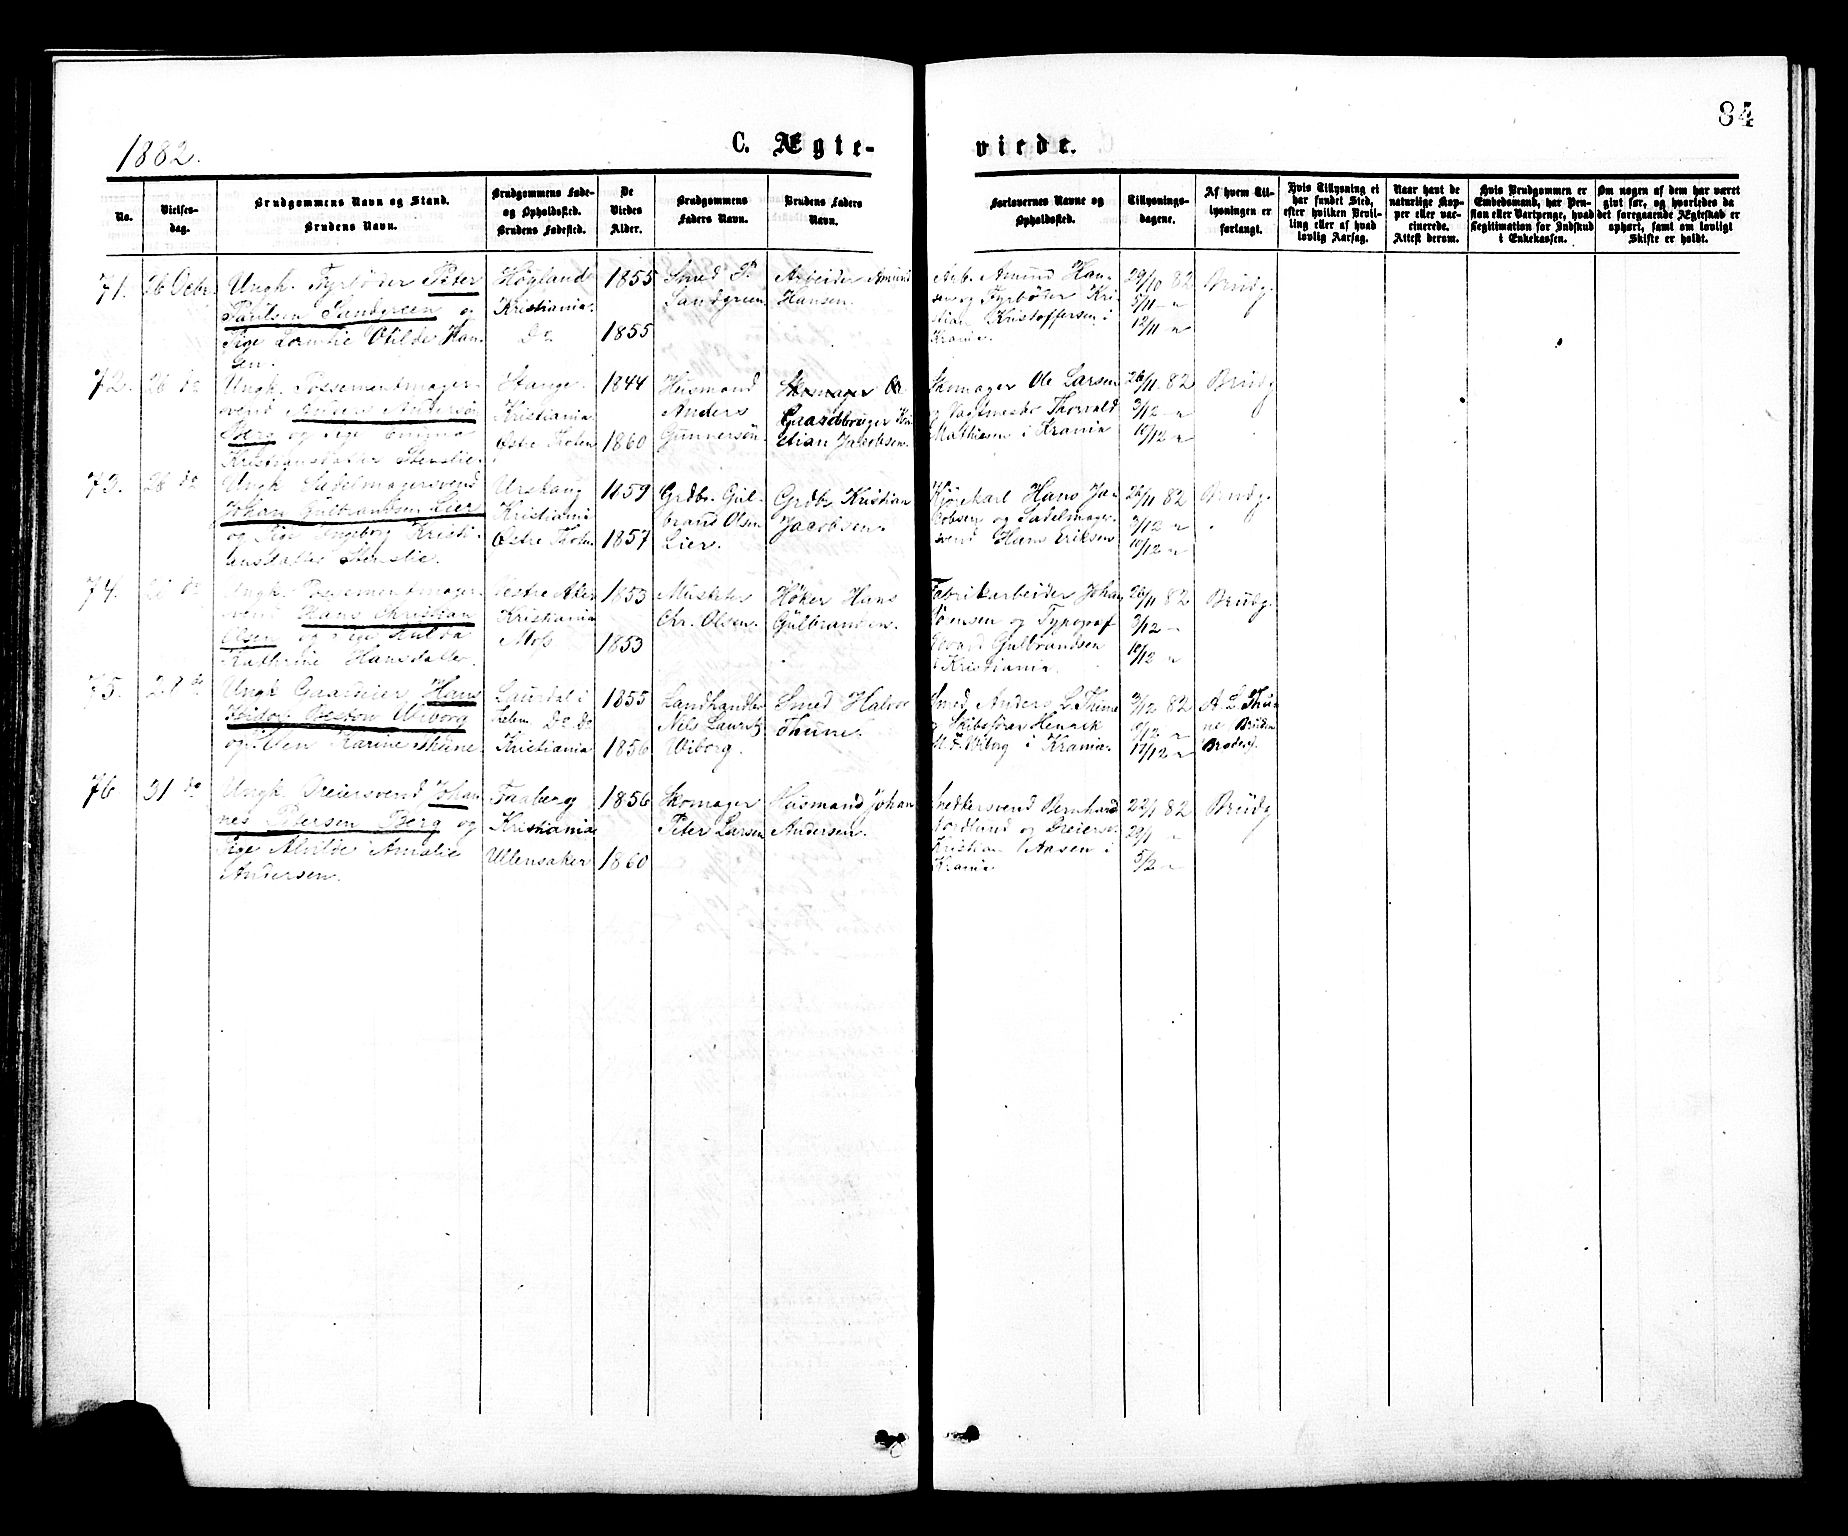 1882.
C. Ægte-
viede.
34
No.
Vielses-
dag.
Brudgommens Navn og Stand.
Brudens Navn.
Brudgommens Føde-
og Opholdssted.
Brudens Fødested.
De
Viedes
Alder.
Brudgommens
Faders Navn.
Brudens Faders
Navn.
Forlovernes Navne og
Opholdssted.
Tillysnings-
dagene.
Af hvem Til-
lysningen er
forlangt.
Hvis Tillysning ei
har fundet Sted,
efter hvilken Bevil-
ling eller af hvad
lovlig Aarsag.
Naar havt de
naturlige Kop-
per eller vac-
cinerede.
Attest derom.
Hvis Brudgommen er
Embedsmand, har Pen-
sion eller Vartpenge, hvad
Legitimation for Indskud
i Enkekassen.
Om nogen af dem har været
givt før, og hvorledes da
det foregaaende Ægteskab er
ophørt, samt om lovligt
Skifte er holdt.
71.
26 Decbr.
Ungk. Fyrbøder Peter
Paulsen Sandgreen og
Pige Otilde Han-
sen.
Kristiania.
Do
1855
1855
Smed P.
Sandgreen
Arbeider Amund
Hansen.
Arb. Amund Han-
sen og Fyrbøder Kri
stian Kristoffersen i
Krania.
29/10 82
5/11 "
12/11 "
Brudg.
72.
26 do
Ungk. Possementmager-
svend Anders Anderson
Berg og Pige
Kristiansdatter Stenslie.
Stange.
Kristiania
Østre Thoten
1844
1860
Husmand
Anders
Gunnersön
Skomager Ole
Gaardbruger Kri
stian Jacobsen.
Skomager Ole Larsen
Thorvald
Mathiesen i Krania
26/11 82
3/12 "
10/12 "
Brudg
73.
28 do
Ungk Sadelmagersvend
Johan Gulbrandsen Lier
og Pige Ingeborg Kristi-
ansdatter Stenslie.
Urskoug
Kristiania
Østre Thoten
1859
1857
Grdbr. Gul-
brand Olsen
Lier.
Grdbr Kristian
Jacobsen.
Kjørekarl Hans Ja-
cobsen og Sadelmager-
svend Hans Eriksen
26/11 82
3/12 "
10/12 "
Brudg.
74.
do
Ungk. Possementmager-
svend Hans Christian
Olsen og Pige Hulda
Kathrine Hansdatter
Vestre Aker
Kristiania
Moss
1853
1853
Chr. Olsen.
Høker Hans
Gulbransen.
Fabrikarbeider Johan
og Typograf
Gulbrandsen
i Kristiania.
26/11 82
3/12 "
10/12 "
Brudg.
75.
28 do
Ungk Hans
Wiborg
og Karine Thune.
Laurdal i
Do Do
Kristiania
1855
1856
Landhandler
Nils Lauritz
Wiborg.
Smed Halvor
Thune.
Smed Anders L. Thune
og Skibsfører Henrik
Wiborg i Krania
3/12 82
10/12 "
17/12 "
A. L. Thu-
ne Brudens
Broder.
76
31 do
Ungk Dreiersvend Johan
nes Petersen Berg og
Pige Alvilde Amalie
Andersen.
Faaberg
Kristiania
Ullensaker
1856
1860
Skomager
Peter Larsen
Husmand Johan
Andersen.
Snedkersvend Bernhard
Nordlund og Dreiersv
Kristian Aasen i
Krania
22/1 82
29/1 "
5/2 "
Brudg